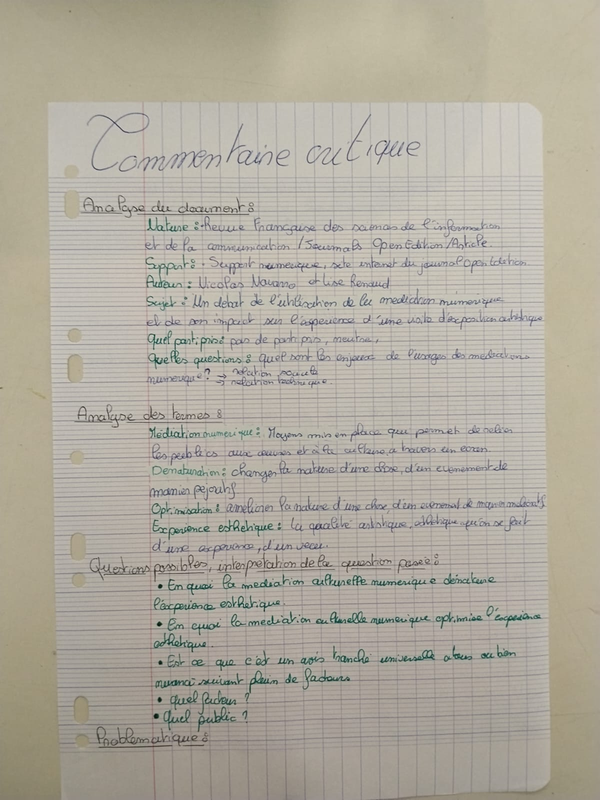 Commentaire critique
Analyse du document :
Nature : Revue Française des sciences de l'information
et de la communication / Journals OpenEdition / Article.
Support : Support numerique, site internet du journal OpenEdition
Auteur : Nicolas Navarro et Lise Renaud
Sujet : Un débat de l'utilisation de la mediation numerique
et de son impact sur l'experience d'une visite d'exposition artistique
Quel parti pris : pas de parti pris, neutre,
Quelles questions : quel sont les enjeux de l'usages des mediations
numerique ? → relation sociale
→ relation technique.
Analyse des termes :
Médiation numerique : Moyens mis en place qui permet de relier
les publics aux œuvres et à la culture, a travers un ecran.
Denaturation : changer la nature d'une chose, d'un evenement de
manier pejoratif
Optimisation : ameliorer la nature d'une chose, d'un evenement de manier
Experience esthetique : la qualité artistique, esthetique qu'on se fait
d'une experience, d'un vecu.
Questions possibles, interpretation de la question posée :
• En quoi la mediation culturelle numerique dénature
l'experience esthetique.
• En quoi la mediation culturelle numerique optimise l'experience
esthetique.
• Est ce que c'est un avis tranché universelle a tous ou bien
nuancé suivant plein de facteurs
• Quel facteur ?
• Quel public ?
Problematique :